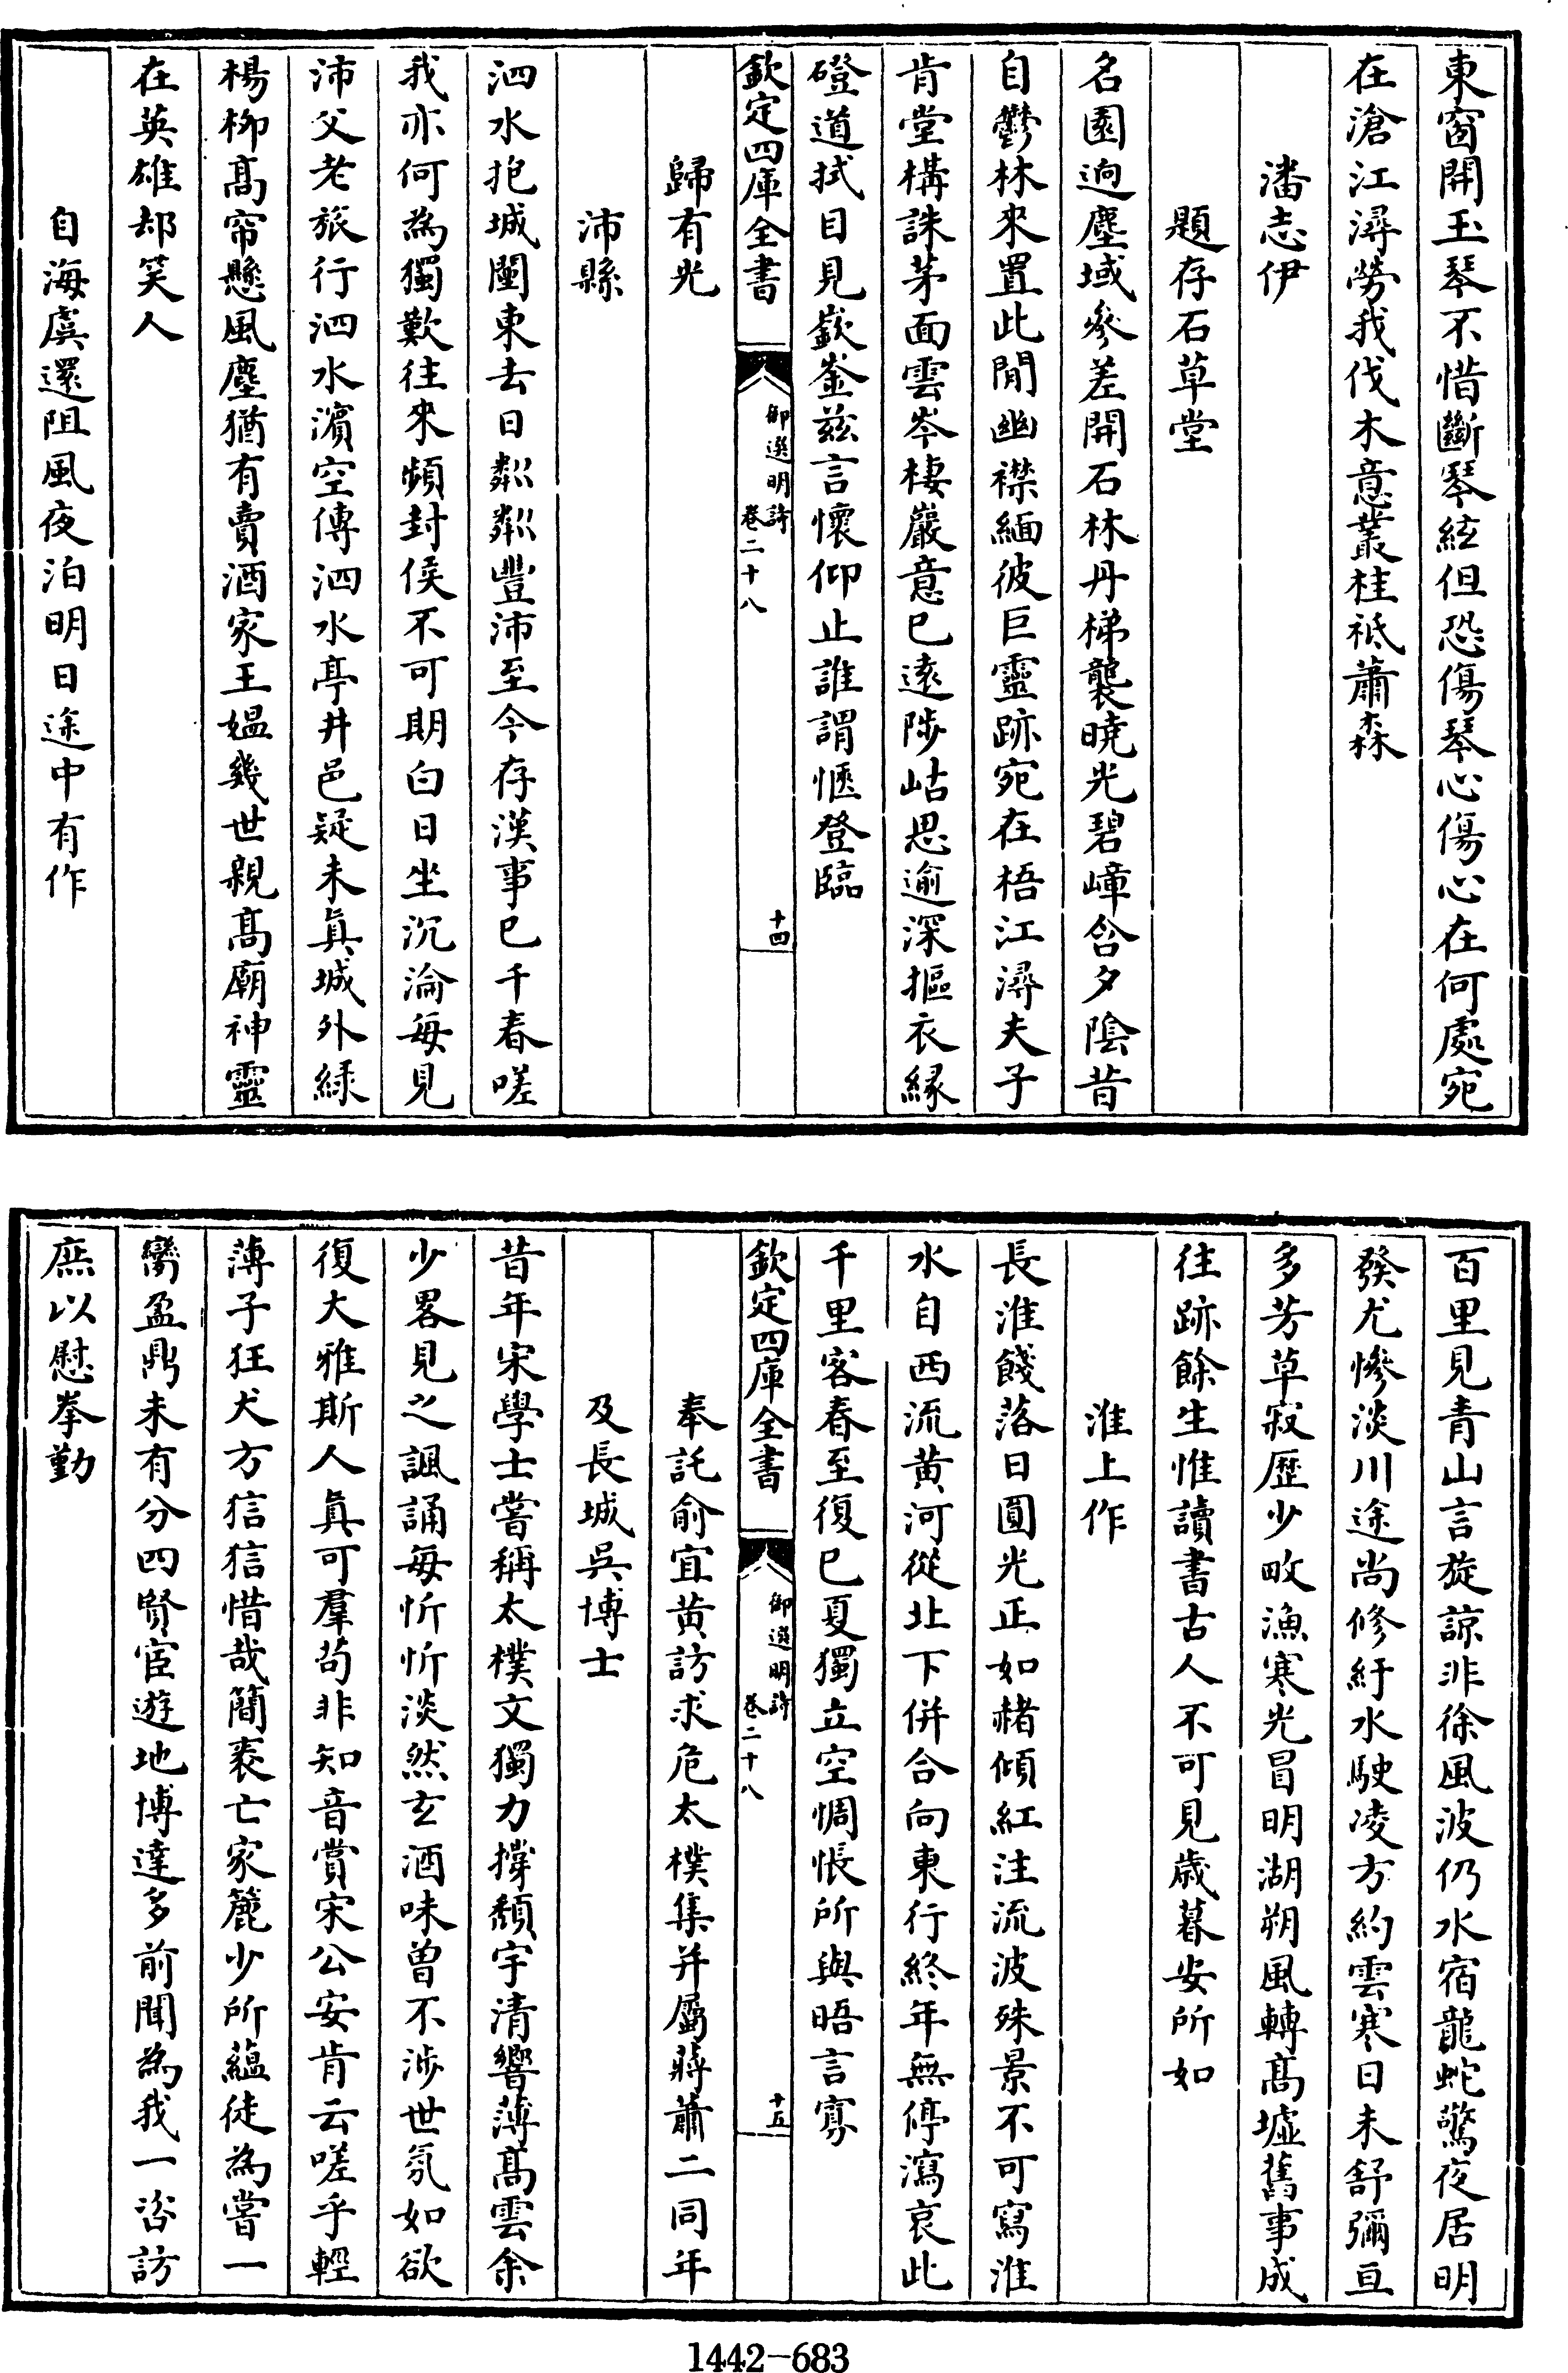 東窗開玉琴不惜斷琴絃但恐傷琴心傷心在何處宛
在滄江潯勞我伐木意叢桂祗蕭森
潘志伊
題存石草堂
名園逈塵域參差開石林丹梯襲曉光碧嶂含夕陰昔
自鬱林來置此閒幽襟緬彼巨靈跡宛在梧江潯夫子
肯堂構誅茅面雲岑棲巖意已遠陟岵思逾深摳衣緣
磴道拭目見嶔崟兹言懷仰止誰謂愜登臨
欽定四庫全書
御選明詩
卷二十八
十四
歸有光
沛縣
泗水抱城闉東去日粼粼豐沛至今存漢事已千春嗟
我亦何為獨歎往來頻封侯不可期白日坐沉淪每見
沛父老旅行泗水濱空傳泗水亭井邑疑未真城外緑
楊柳髙帘懸風塵猶有賣酒家王媪幾世親髙廟神靈
在英雄却笑人
自海虞還阻風夜泊明日途中有作
百里見青山言旋諒非徐風波仍水宿龍蛇驚夜居明
發尤慘淡川途尚修紆水駛凌方約雲寒日未舒彌亘
多芳草寂歷少畋漁寒光冒明湖朔風轉髙墟舊事成
往跡餘生惟讀書古人不可見歲暮安所如
淮上作
長淮餞落日圓光正如赭傾紅注流波殊景不可寫淮
水自西流黄河從北下併合向東行終年無停瀉哀此
千里客春至復已夏獨立空惆悵所與晤言寡
欽定四庫全書
御選明詩
卷二十八
十五
奉託俞宜黄訪求危太樸集并屬蔣蕭二同年
及長城吳博士
昔年宋學士嘗稱太樸文獨力撐頹宇清響薄髙雲余
少畧見之諷誦每忻忻淡然玄酒味曽不涉世氛如欲
復大雅斯人真可羣苟非知音賞宋公安肯云嗟乎輕
薄子狂犬方狺狺惜哉簡袠亡家簏少所藴徒為嘗一
臠盈鼎未有分四賢宦遊地博達多前聞為我一咨訪
庶以慰拳勤
1442-683